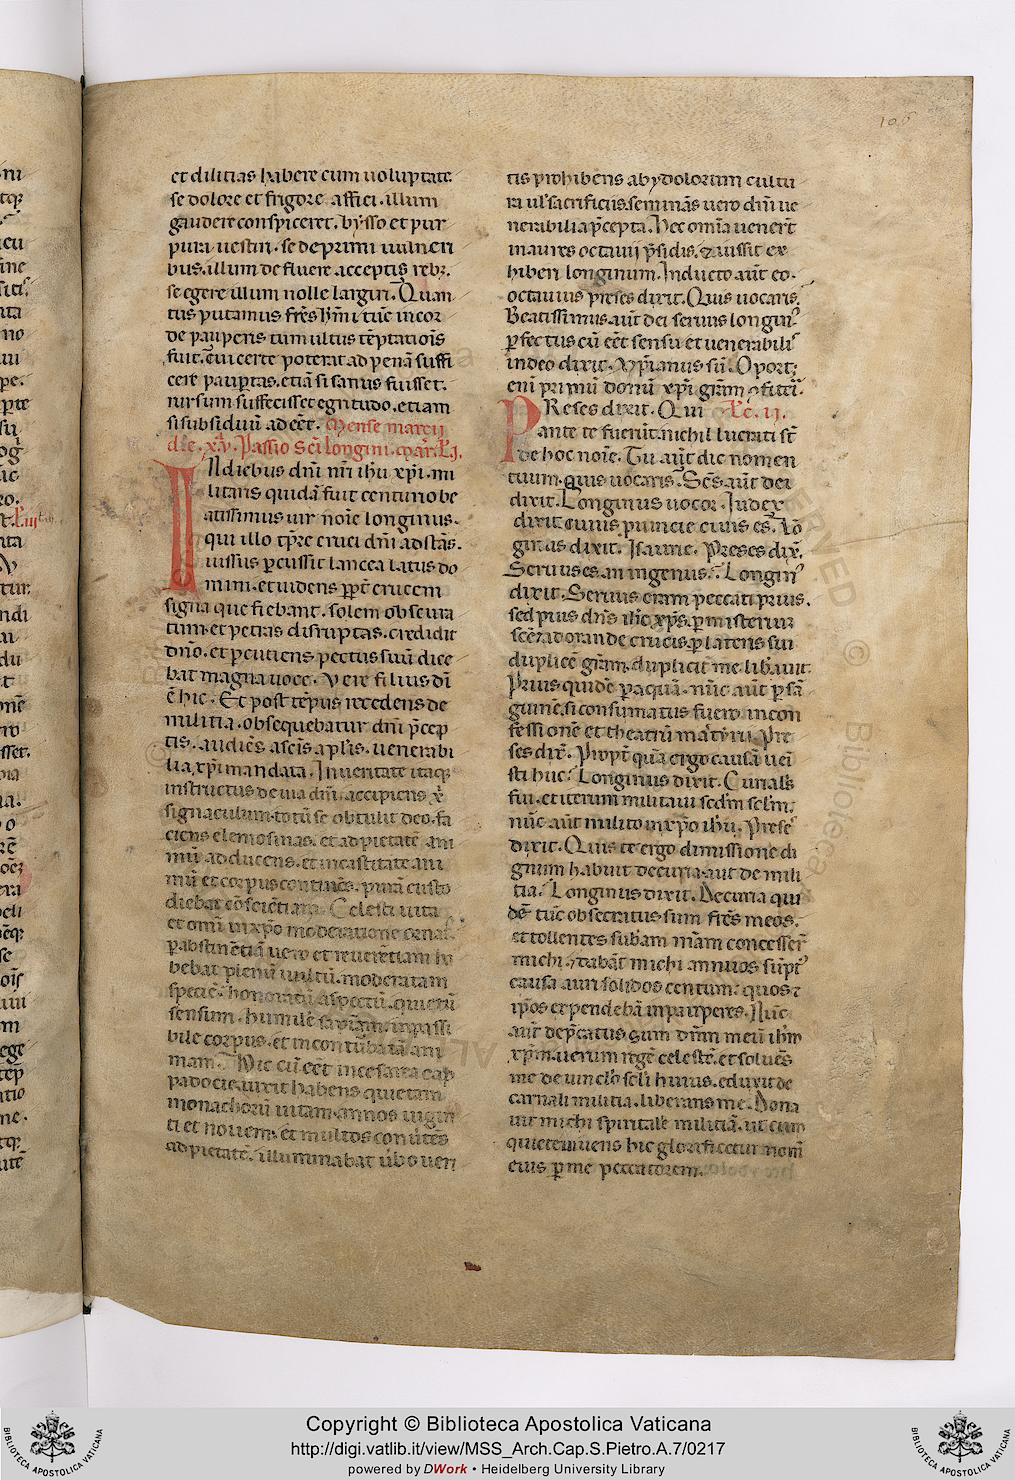 105
et dilitias habere cum uoluptate.
se dolore et frigore affici. illum
gaudere conspiceret. bysso et pur
pura uestiri. se deprimi uulneri
bus. illum defluere acceptis reb;.
se egere illum nolle largiri. Quan
tus putamus frēs kmi tūc in cor
de pauperis tumultus tēptatiōis
fuit. cui certe poterat ad penā suffi
cere paupertas. etiā si sanus fuisset.
rursum suffecisset egritudo. etiam
si subsidiū adeēt. Mense marcii
die. xv. Passio Scī longini. mar.
IN diebus dn̄i nr̄i ih̄u xp̄i. mi
litaris quidā fuit centurio be
atissimus uir noīe longinus.
qui illo tp̄re cruci dn̄i adstās.
iussus percussit lancea latus do
mini. et uidens ppt̄ crucem
signa que fiebant. solem obscura
tum. et petras disruptas. credidit
dn̄o. et percutiens pectus suū dice
bat magna uoce. Vere filius dī
ē hic. Et post tēpus recedens de
militia. obsequebatur dn̄i p̄cep
tis. audiēs a scīs aplīs. uenerabi
lia xp̄i mandata. In ueritate itaq;
instructus de uia dn̄i. accipiens x̄
signaculum. totū se obtulit deo. fa
ciens elemosinas. et ad pietatē ani
mū adducens. et in castitate ani
mū et corpus continēs. purā custo
diebat cōsciētiam. Celesti uita
et omī in xp̄o moderatione ornat
pabstinētiā uero et reuerētiam ha
bebat plenū uultū. moderatam
speciē. honoratū aspectū. quietū
sensum. humilē sapīam. inpassi
bile corpus. et incontūbatā ani
mam. Hic cū eēt in cesarea cap
padocie. uixit habens quietam
monachorū uitam. annos uigin
ti et nouem. et multos conūtēs
ad pietatē. illuminabat ūbo ueri
tis prohibens ab ydolorum cultu
ra ul sacrificiis. seminās uero dn̄i ue
nerabilia p̄cepta. Hec omīa uenerūt
in aures octauii p̄sidis. & iussit ex
hiberi longinum. Inducto aūt eo.
octauius preses dixit. Quis uocaris.
Beatissimus aūt dei seruus longin;
pfectus cū eēt sensu et uenerabilis
in deo dixit. Xp̄ianus sū. Oport;
enī primū donū xp̄i grām ꝯfiteri.
PReses dixit. Qui Lc. ii.
ante te fuerūt. nichil lucrati st̄
de hoc noīe. Tu aūt dic nomen
tuum. quis uocaris. Scs̄ aūt dei
dixit. Longinus uocor. Iudex
dixit. cuius puincie ciuis es. Lō
ginus dixit. Isaurie. Preses dix̄.
Seruus es. an ingenuus. Longin;
dixit. Seruus eram peccati prius.
sed pius dn̄s ih̄c xp̄s. p misterium
scē adorande crucis. p lateris sui
duplicē grām. duplicit̄ me lib̄auit.
Prius quidē p aquā. nūc aūt p sā
guinē. si consumatus fuero in con
fessionē et theatrū martyrii. Pre
ses dix̄. Propt̄ quā ergo causā ueī
sti huc. Longinus dixit. Curialis
fui. et iterum militaui sedm sclm;
nūc aūt milito in xp̄o ih̄u. Preses
dixit. Quis te ergo dimissione di
gnum habuit decuria aut de mili
tia. Longinus dixit. Decuria qui
dē tūc obsecratus sum frēs meos.
et tollentes subām mām concesser̄
michi. & dabāt michi annuos sūpt;
causa auri solidos centum. quos &
ip̄os expendebā in pauperes. Nūc
aūt dep̄catus sum dn̄m meū ih̄m
xp̄m. uerum regē celestē. et soluēs
me de uinclō scli huius. eduxit de
carnali militia. liberans me. Dona
uit michi spiritalē militiā. ut cum
quiete uiuens hic glorificetur nomē
eius p me peccatorem.
Copyright © Biblioteca Apostolica Vaticana
http://digi.vatlib.it/view/MSS_Arch.Cap.S.Pietro.A.7/0217
powered by DWork • Heidelberg University Library
BIBLIOTECA APOSTOLICA VATICANA
BIBLIOTECA APOSTOLICA VATICANA